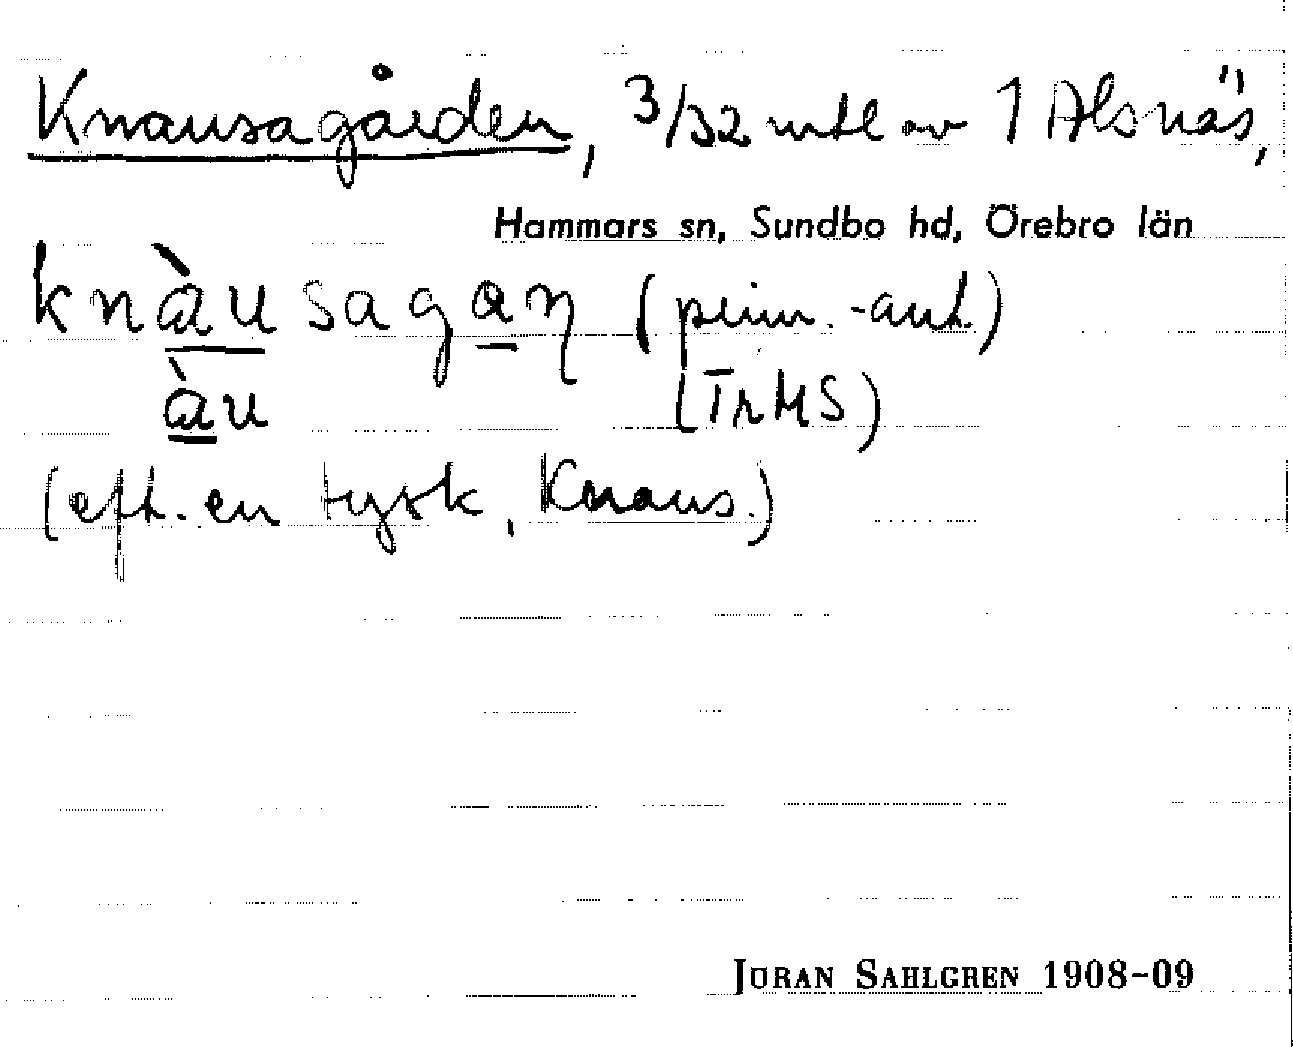 Knausagården, 3/32 mtl av 1 Alsnäs,
Hammars sn, Sundbo hd, Örebro län
knàusagaη (prim. -ant.)
àu (TrMS)
(eft. en tysk, Knaus.)
JÖRAN SAHLGREN 1908-09